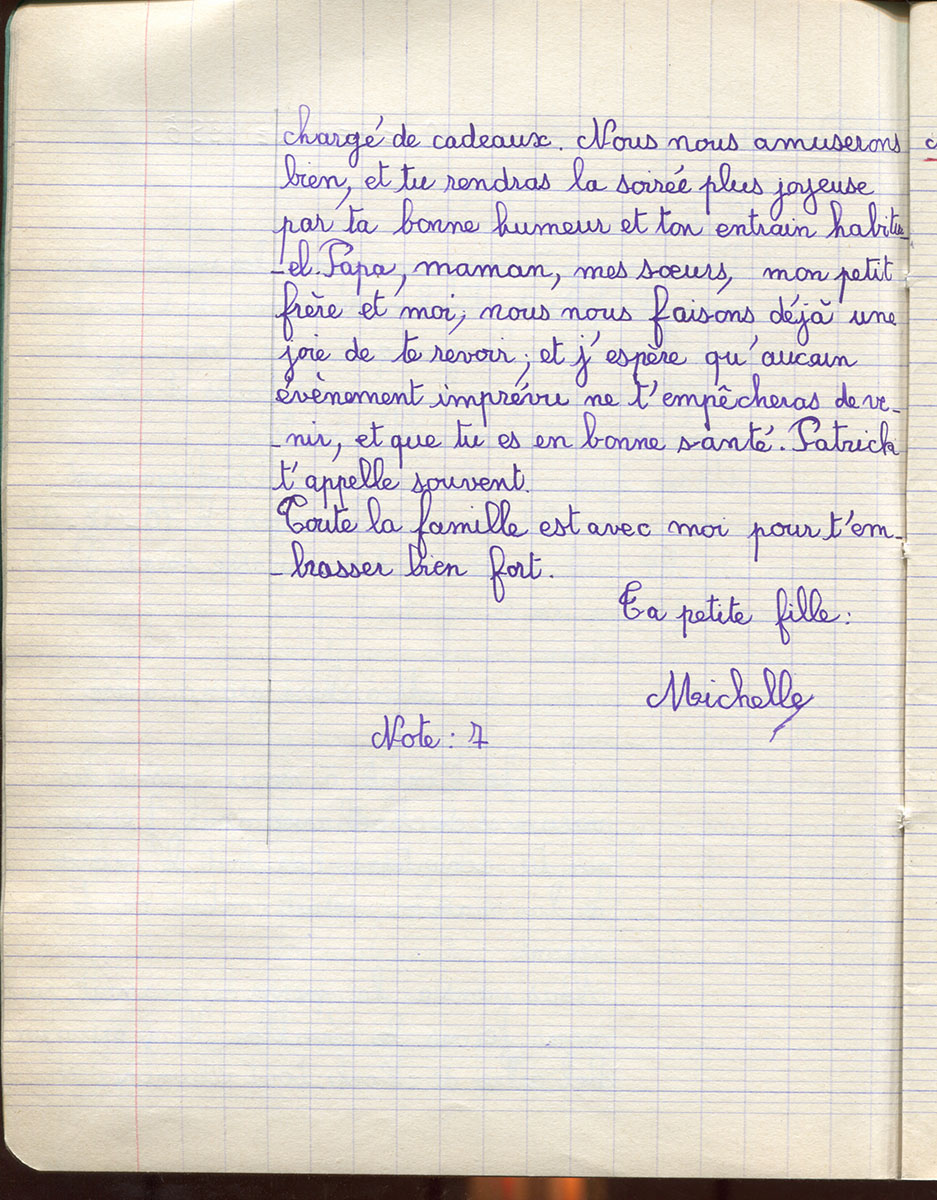 chargé de cadeaux. Nous nous amuserons
bien, et tu rendras la soirée plus joyeuse
par ta bonne humeur et ton entrain habitu-
-el. Papa, maman, mes sœurs, mon petit
frère et moi, nous nous faisons déjà une
joie de te revoir, et j'espère qu'aucain
évènement imprévu ne t'empêcheras de ve-
-nir, et que tu es en bonne santé. Patrick
t'appelle souvent.
Toute la famille est avec moi pour t'em-
-brasser bien fort.
Ta petite fille:
Michelle
Note: 7